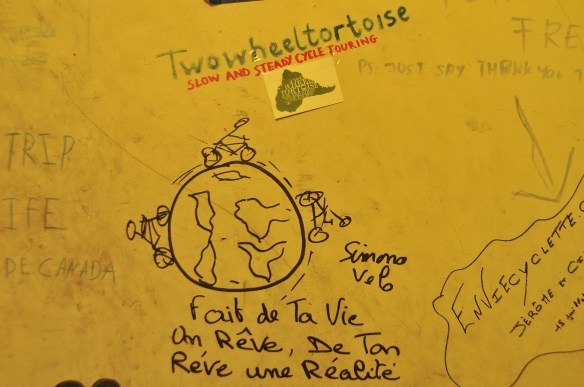 Twowheeltortoise
SLOW AND STEADY CYCLE TOURING
FRE
PS: JUST SAY THANK YOU
TRIP
IFE
DE CANADA
Simono
Velo
Fait de Ta Vie
Un Rêve, De Ton
Réve une Réalité
ENVIECYCLETTE
JÉRÔME